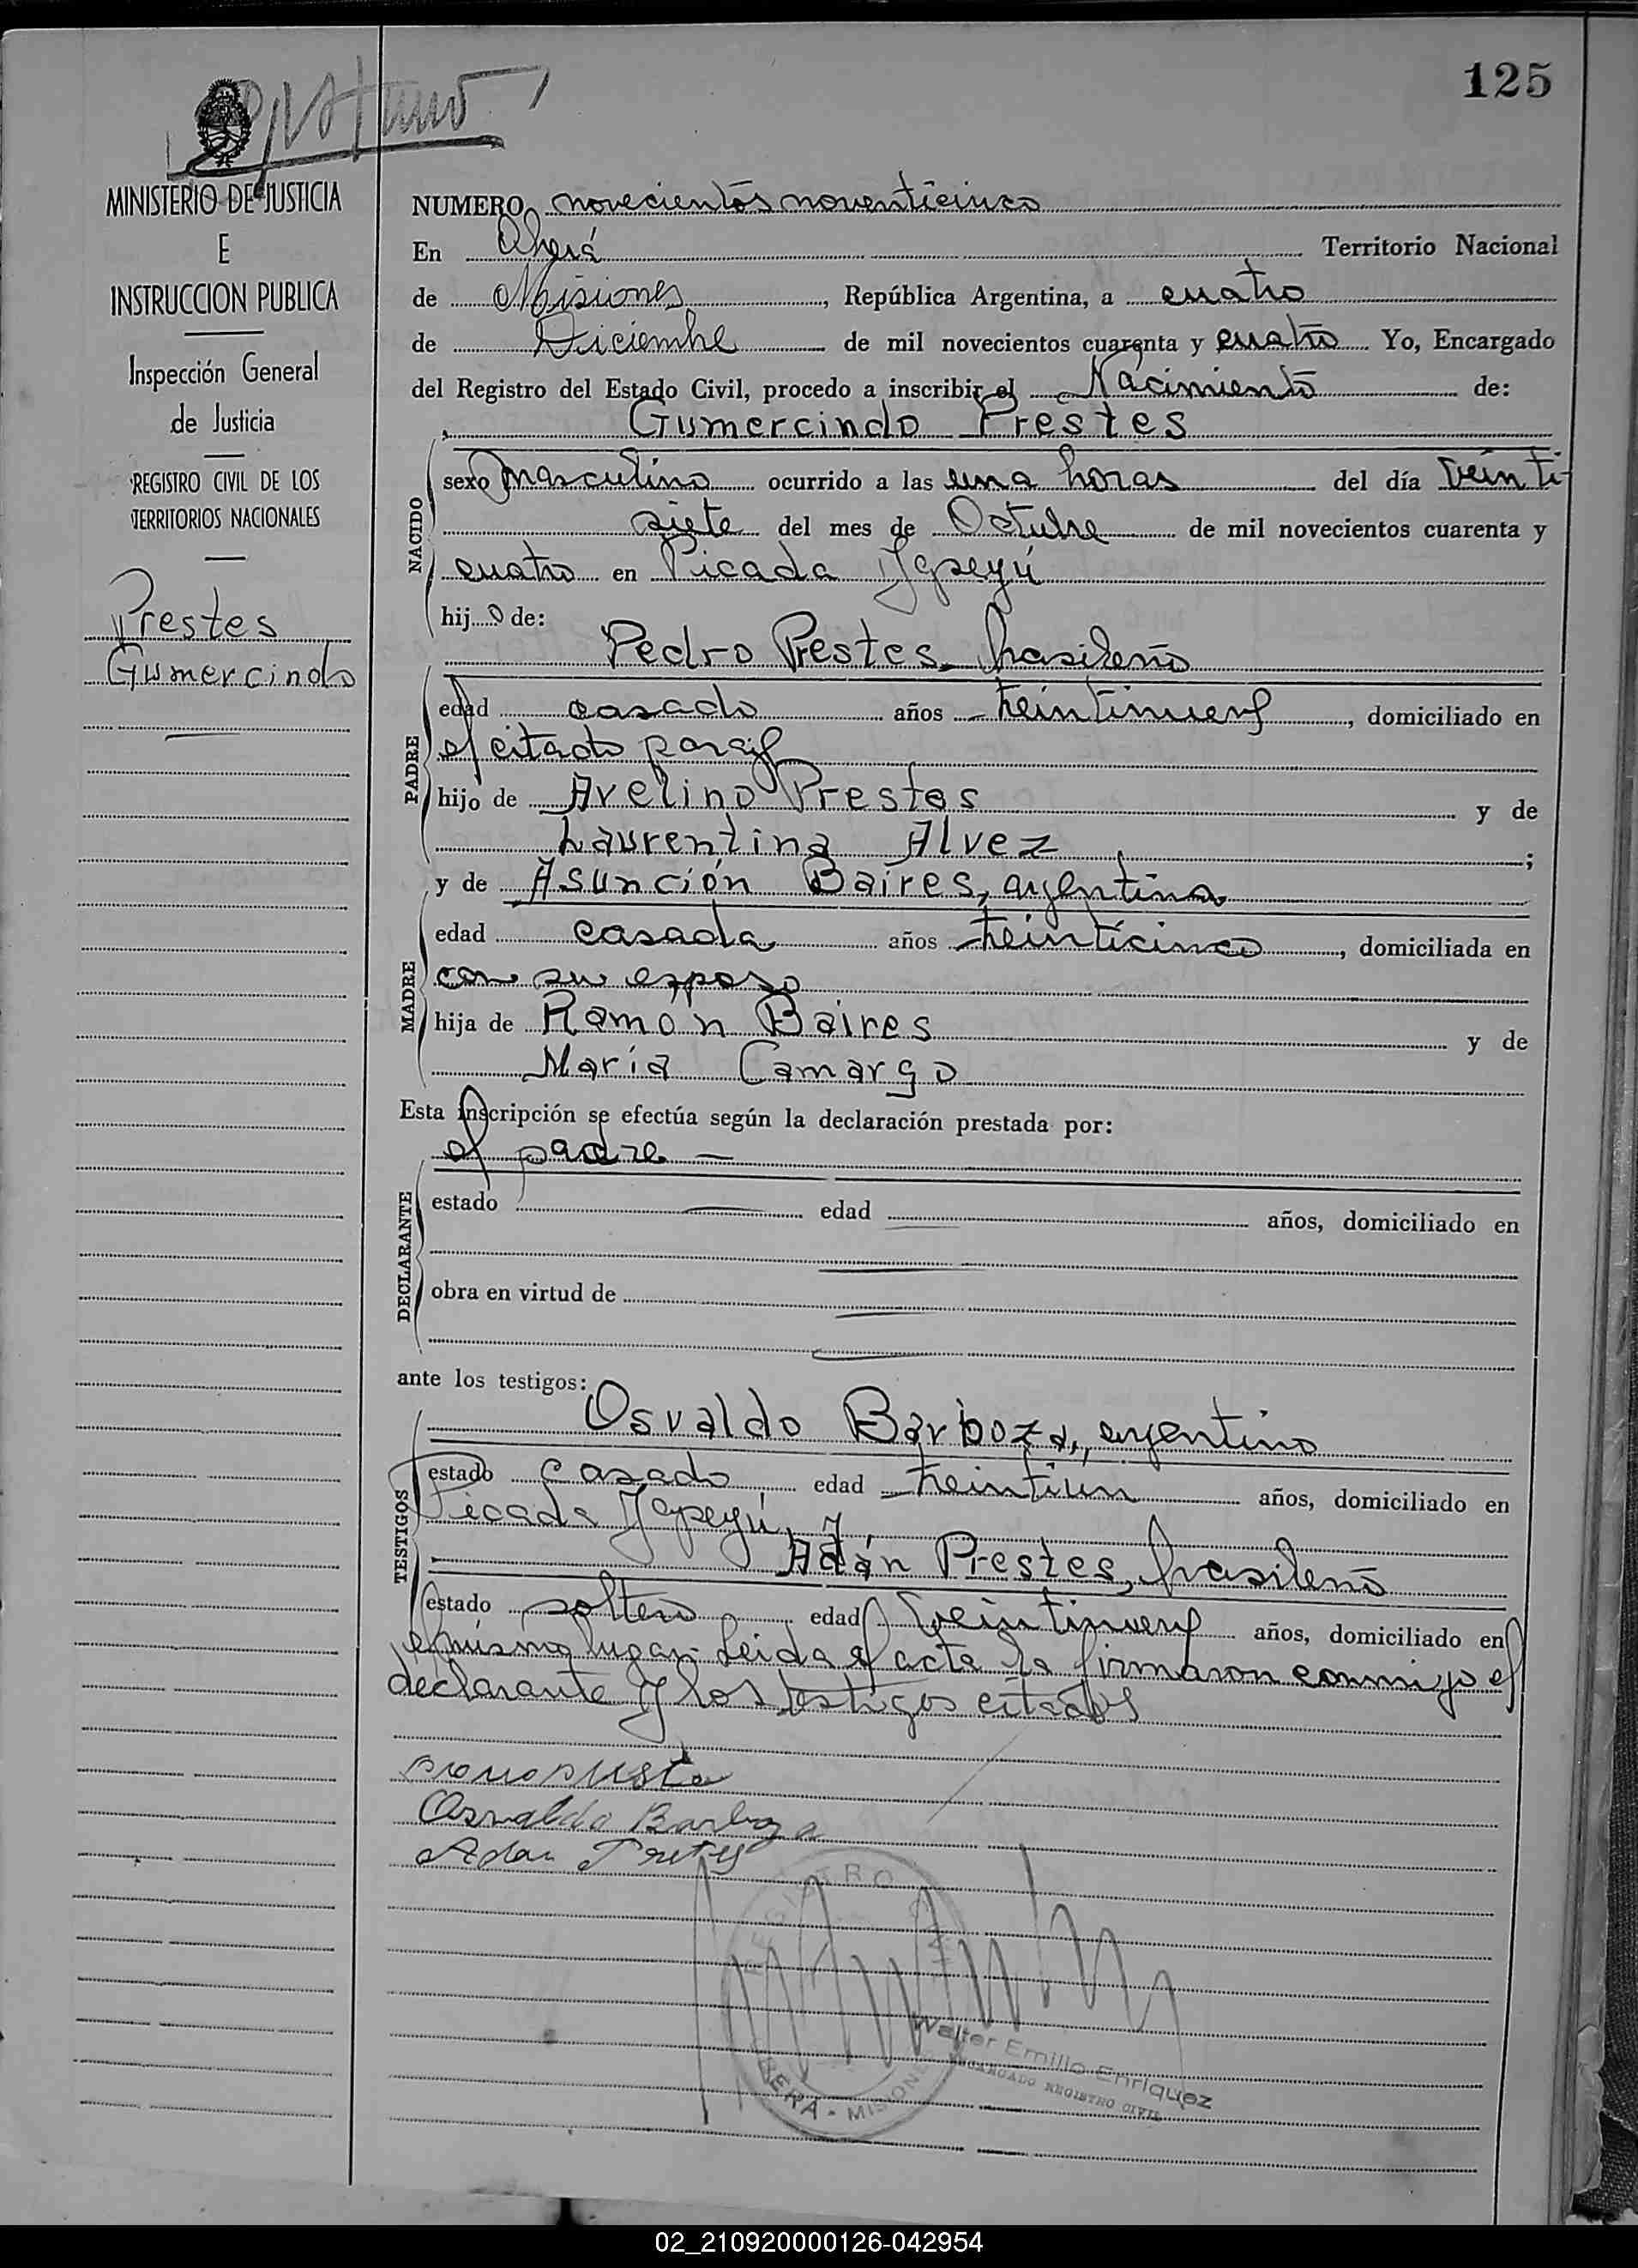 125
MINISTERIO DE JUSTICIA
E
INSTRUCCION PUBLICA
Inspección General
de Justicia
REGISTRO CIVIL DE LOS
TERRITORIOS NACIONALES
Prestes
Gumercindo
NUMERO novecientos noventicinco
En Oberá Territorio Nacional
de Misiones, República Argentina, a cuatro
de Diciembre de mil novecientos cuarenta y cuatro Yo, Encargado
del Registro del Estado Civil, procedo a inscribir el Nacimiento de:
Gumercindo Prestes
NACIDO
sexo masculino ocurrido a las una horas del día veinti
siete del mes de Octubre de mil novecientos cuarenta y
cuatro en Picada Yapeyú
hijo de:
Pedro Prestes, brasileño
PADRE
edad casado años treintinueve, domiciliado en
el citado paraje
hijo de Avelino Prestes y de
Laurentina Alvez ;
y de Asunción Baires, argentina
MADRE
edad casada años treinticinco, domiciliada en
con su esposo
hija de Ramón Baires y de
María Camargo
Esta inscripción se efectúa según la declaración prestada por:
el padre —
DECLARANTE
estado edad años, domiciliado en
obra en virtud de
ante los testigos:
Osvaldo Barboza, argentino
TESTIGOS
estado casado edad treintiun años, domiciliado en
Picada Yapeyú, y
Adán Prestes, brasileño
estado soltero edad veintinueve años, domiciliado en
el mismo lugar. Leida el acta la firmaron conmigo el
declarante y los testigos citados
Osvaldo Barboza
Adan Pretes
REGISTRO
OBERA - MISIONES
Walter Emilio Enriquez
ENCARGADO REGISTRO CIVIL
02_210920000126-042954